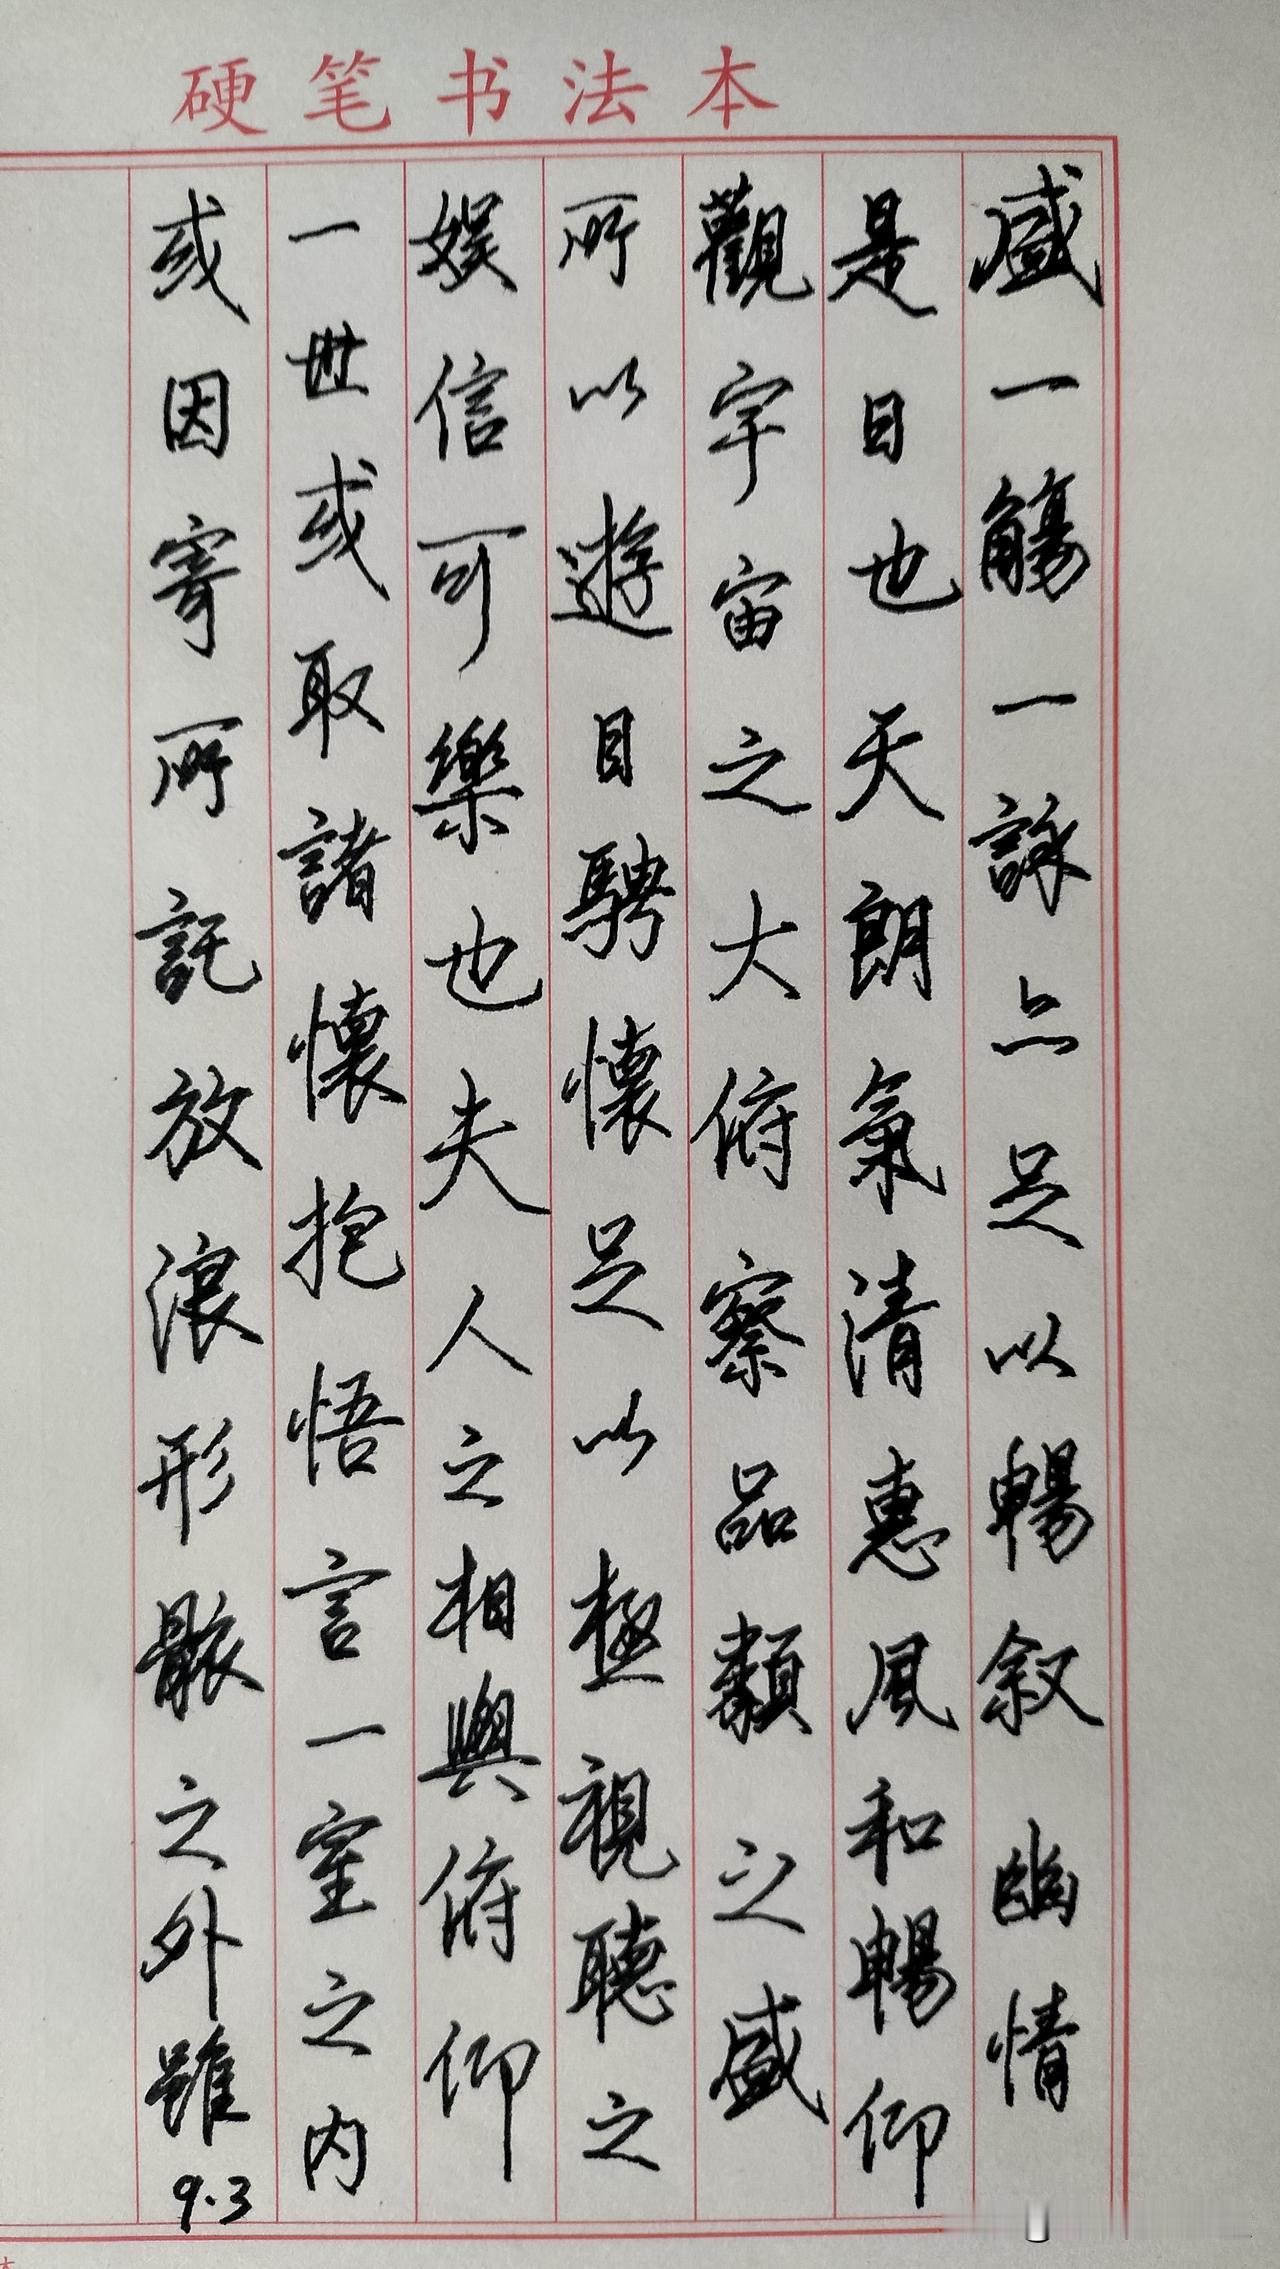 硬笔书法本
盛一觴一詠亦足以暢叙幽情
是日也天朗氣清惠風和暢仰
觀宇宙之大俯察品類之盛
所以遊目騁懷足以極視聽之
娛信可樂也夫人之相與俯仰
一世或取諸懷抱悟言一室之内
或因寄所託放浪形骸之外雖
9.3